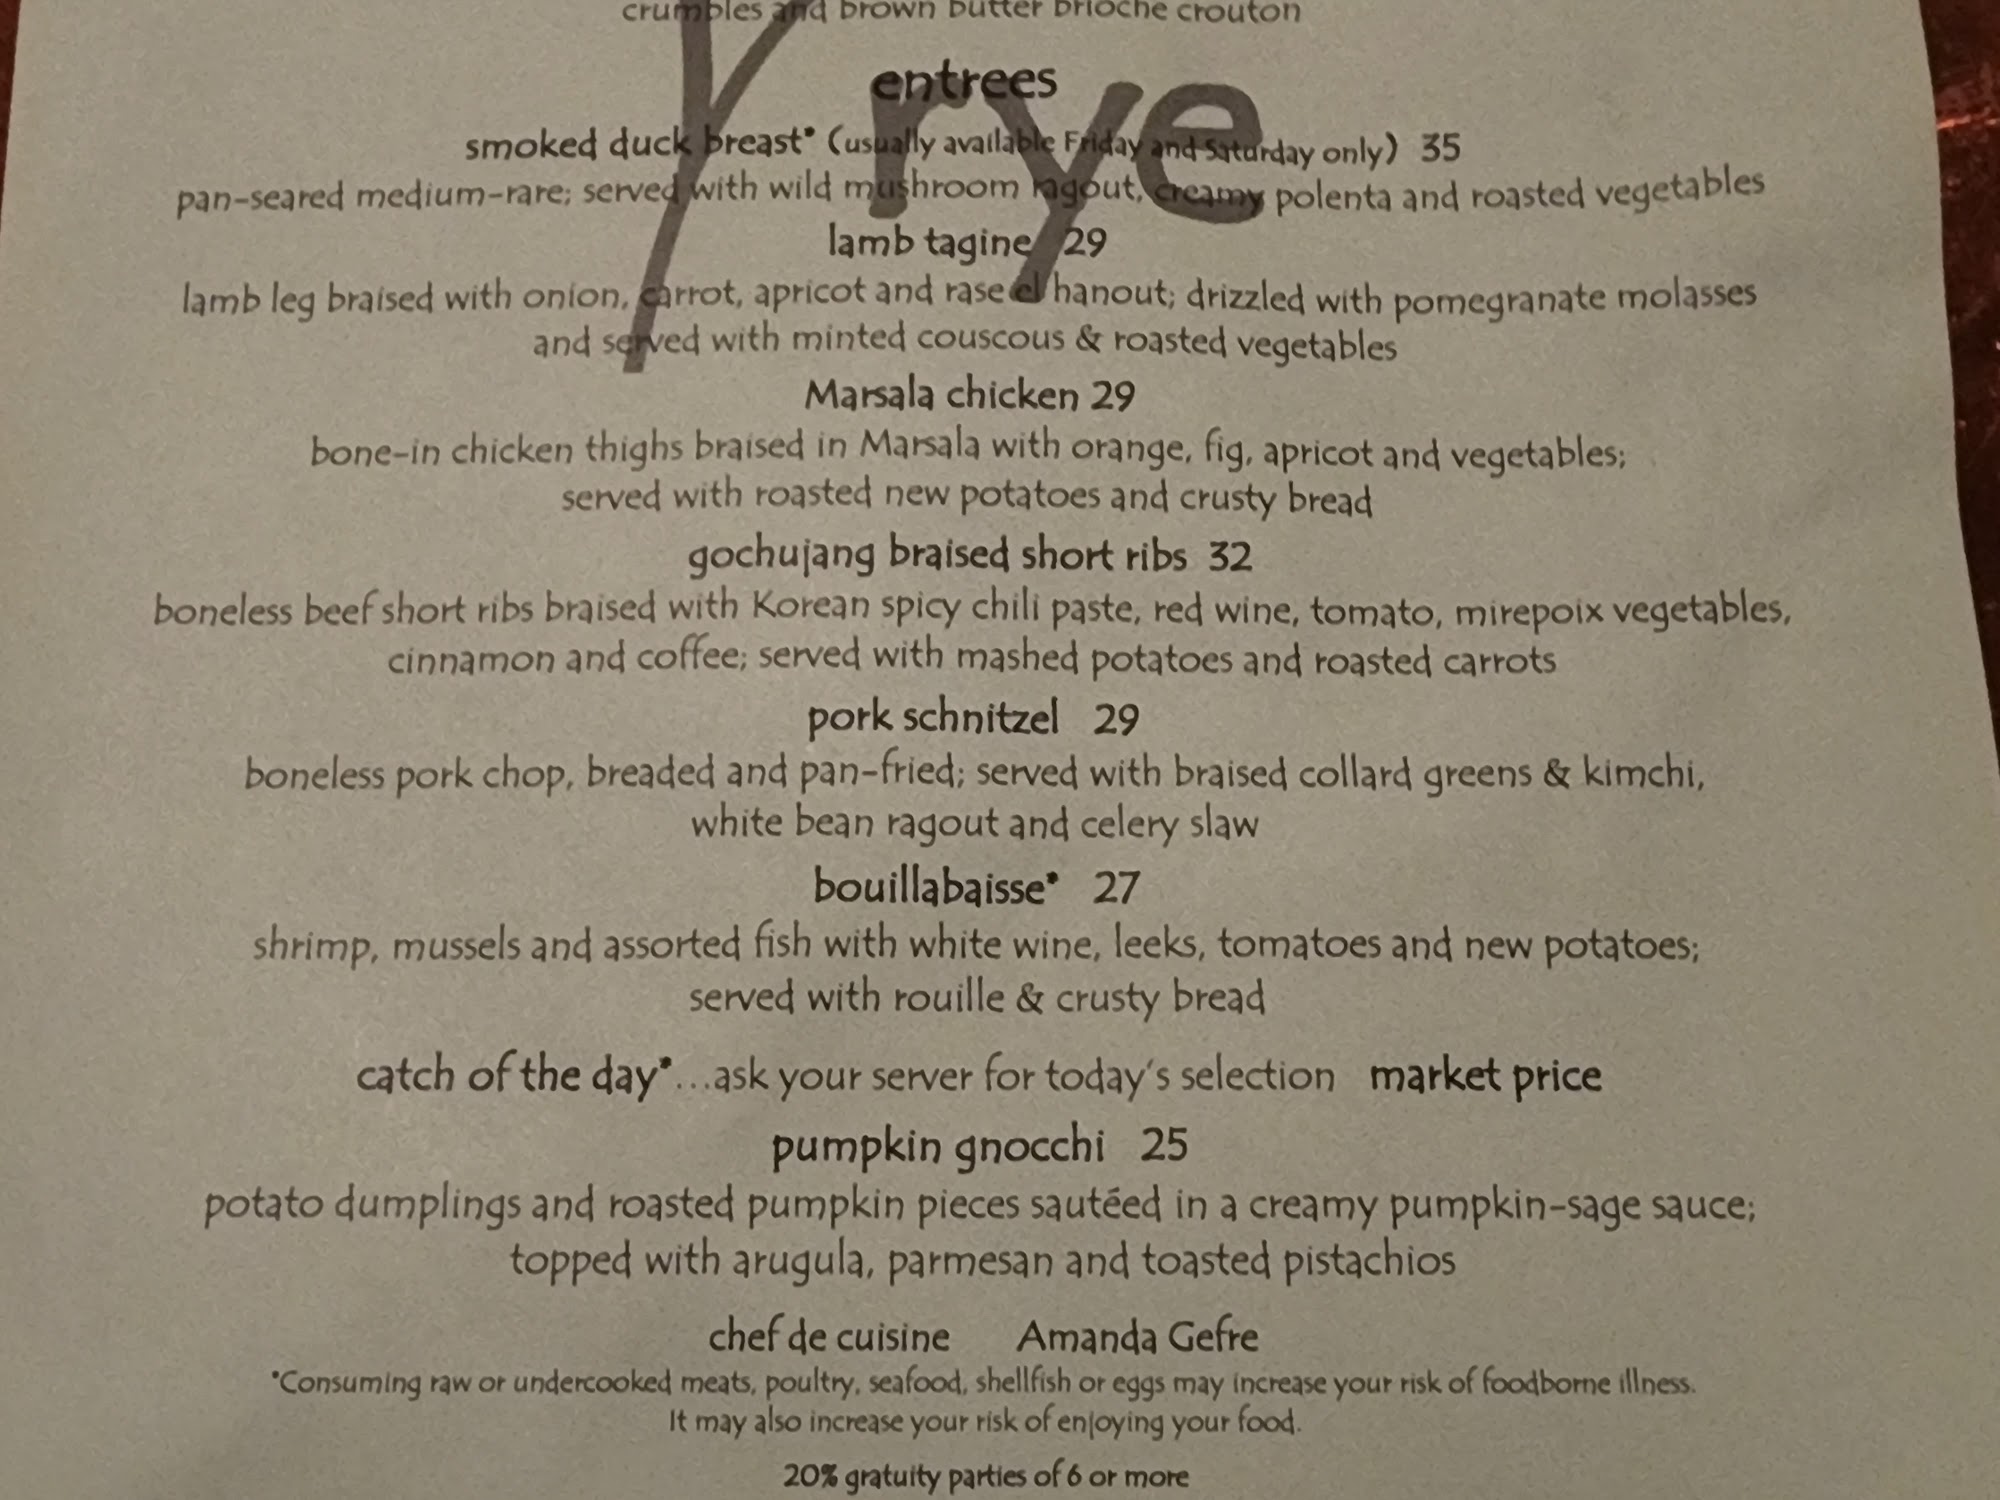 crumbles and brown butter brioche crouton
rye
entrees
smoked duck breast* (usually available Friday and Saturday only) 35
pan-seared medium-rare; served with wild mushroom ragout, creamy polenta and roasted vegetables
lamb tagine 29
lamb leg braised with onion, carrot, apricot and rase el hanout; drizzled with pomegranate molasses
and served with minted couscous & roasted vegetables
Marsala chicken 29
bone-in chicken thighs braised in Marsala with orange, fig, apricot and vegetables;
served with roasted new potatoes and crusty bread
gochujang braised short ribs 32
boneless beef short ribs braised with Korean spicy chili paste, red wine, tomato, mirepoix vegetables,
cinnamon and coffee; served with mashed potatoes and roasted carrots
pork schnitzel 29
boneless pork chop, breaded and pan-fried; served with braised collard greens & kimchi,
white bean ragout and celery slaw
bouillabaisse* 27
shrimp, mussels and assorted fish with white wine, leeks, tomatoes and new potatoes;
served with rouille & crusty bread
catch of the day*...ask your server for today's selection market price
pumpkin gnocchi 25
potato dumplings and roasted pumpkin pieces sautéed in a creamy pumpkin-sage sauce;
topped with arugula, parmesan and toasted pistachios
chef de cuisine Amanda Gefre
*Consuming raw or undercooked meats, poultry, seafood, shellfish or eggs may increase your risk of foodborne illness.
It may also increase your risk of enjoying your food.
20% gratuity parties of 6 or more